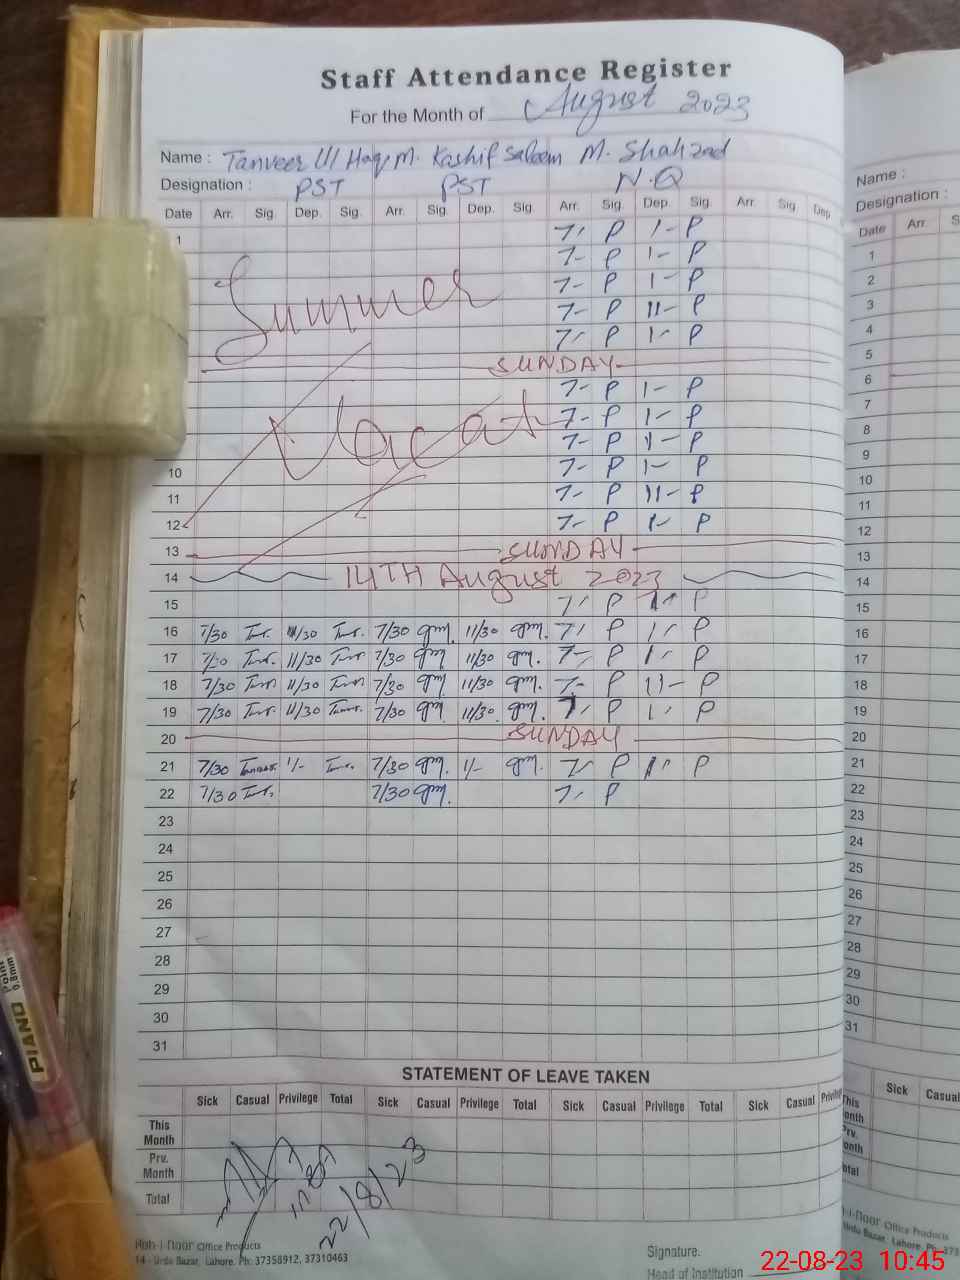 Staff Attendance Register
For the Month of August 2023
Name : Tanveer Ul Haq M. Kashif Saleem M. Shahzad
Designation : PST PST N.Q
Date Arr. Sig. Dep. Sig. Arr. Sig. Dep. Sig. Arr. Sig. Dep. Sig. Arr. Sig Dep
1 7- P 1- P
7- P 1- P
Summer 7- P 1- P
7- P 11- P
7- P 1- P
SUNDAY
7- P 1- P
Vacat 7- P 1- P
7- P 11- P
10 7- P 1- P
11 7- P 11- P
12 7- P 1- P
13 SUNDAY
14 14TH August 2023
15 7- P 1- P
16 7/30 11/30 7/30 11/30 7- P 1- P
17 7/30 11/30 7/30 11/30 7- P 1- P
18 7/30 11/30 7/30 11/30 7- P 11- P
19 7/30 11/30 7/30 11/30 7- P 1- P
20 SUNDAY
21 7/30 1/- 7/30 1/- 7- P 1- P
22 7/30 7/30 7- P
23
24
25
26
27
28
29
30
31
STATEMENT OF LEAVE TAKEN
Sick Casual Privilege Total Sick Casual Privilege Total Sick Casual Privilege Total Sick Casual
This Month
Prv. Month
Total
22/8/23
Office Products
14 - Urdu Bazar, Lahore. Ph: 37358912, 37310463
Signature.
Head of Institution
Name :
Designation :
Date Arr.
1
2
3
4
5
6
7
8
9
10
11
12
13
14
15
16
17
18
19
20
21
22
23
24
25
26
27
28
29
30
31
Sick Casual
Office Products
Urdu Bazar, Lahore. Ph: 373
PIANO
Point 0.8mm
22-08-23 10:45